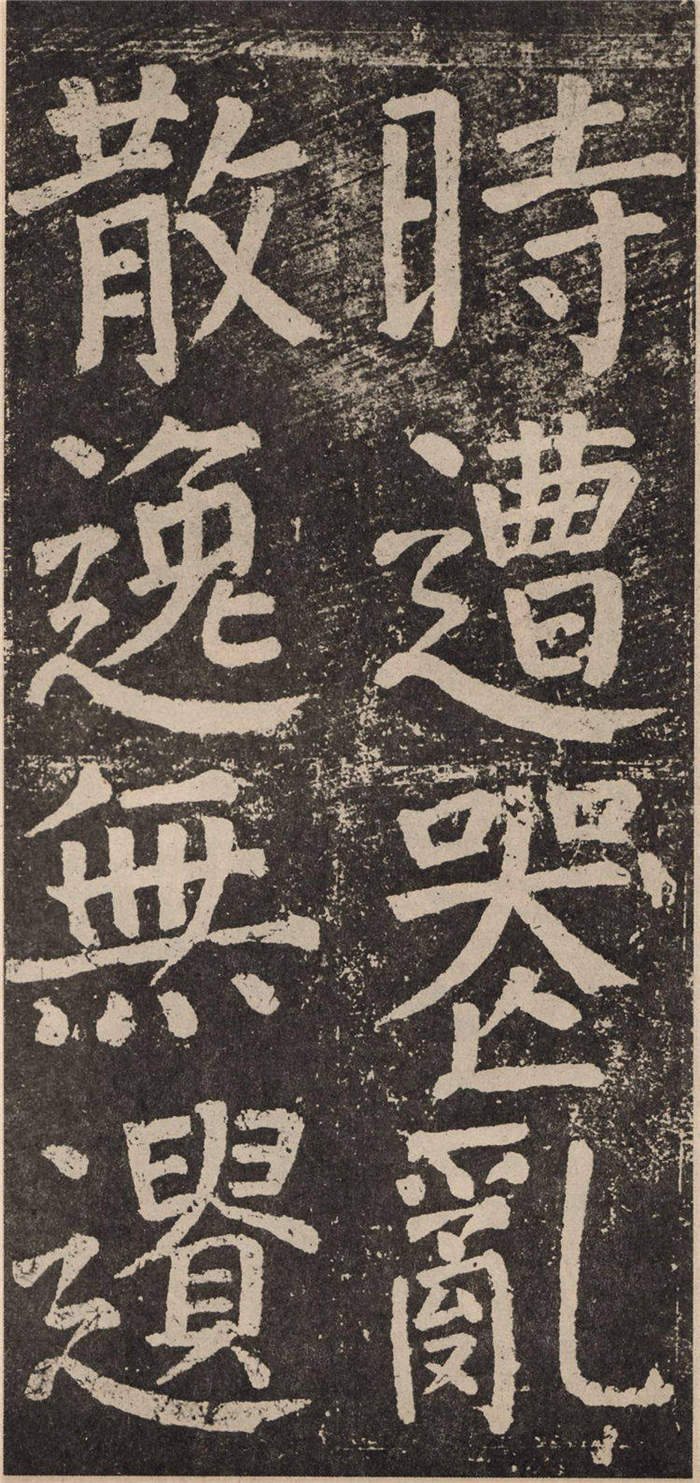 時遭喪亂
散逸無遺